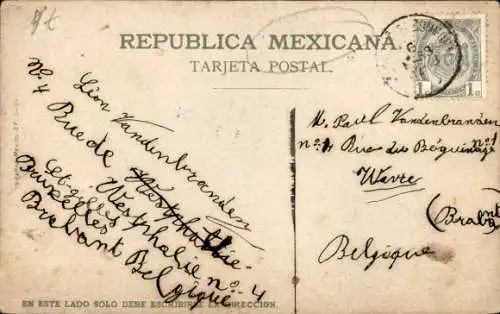 REPUBLICA MEXICANA.
TARJETA POSTAL.
Léon Vandenbranden
No. 4 Rue de Westphalie
St-Gilles Westphalie no. 4
Bruxelles
Brabant Belgique
EN ESTE LADO SOLO DEBE ESCRIBIRSE LA DIRECCION.
1c
1c
M. Paul Vandenbranden
no. 1 Rue du Béguinage no 1
Wavre
(Brabant)
Belgique